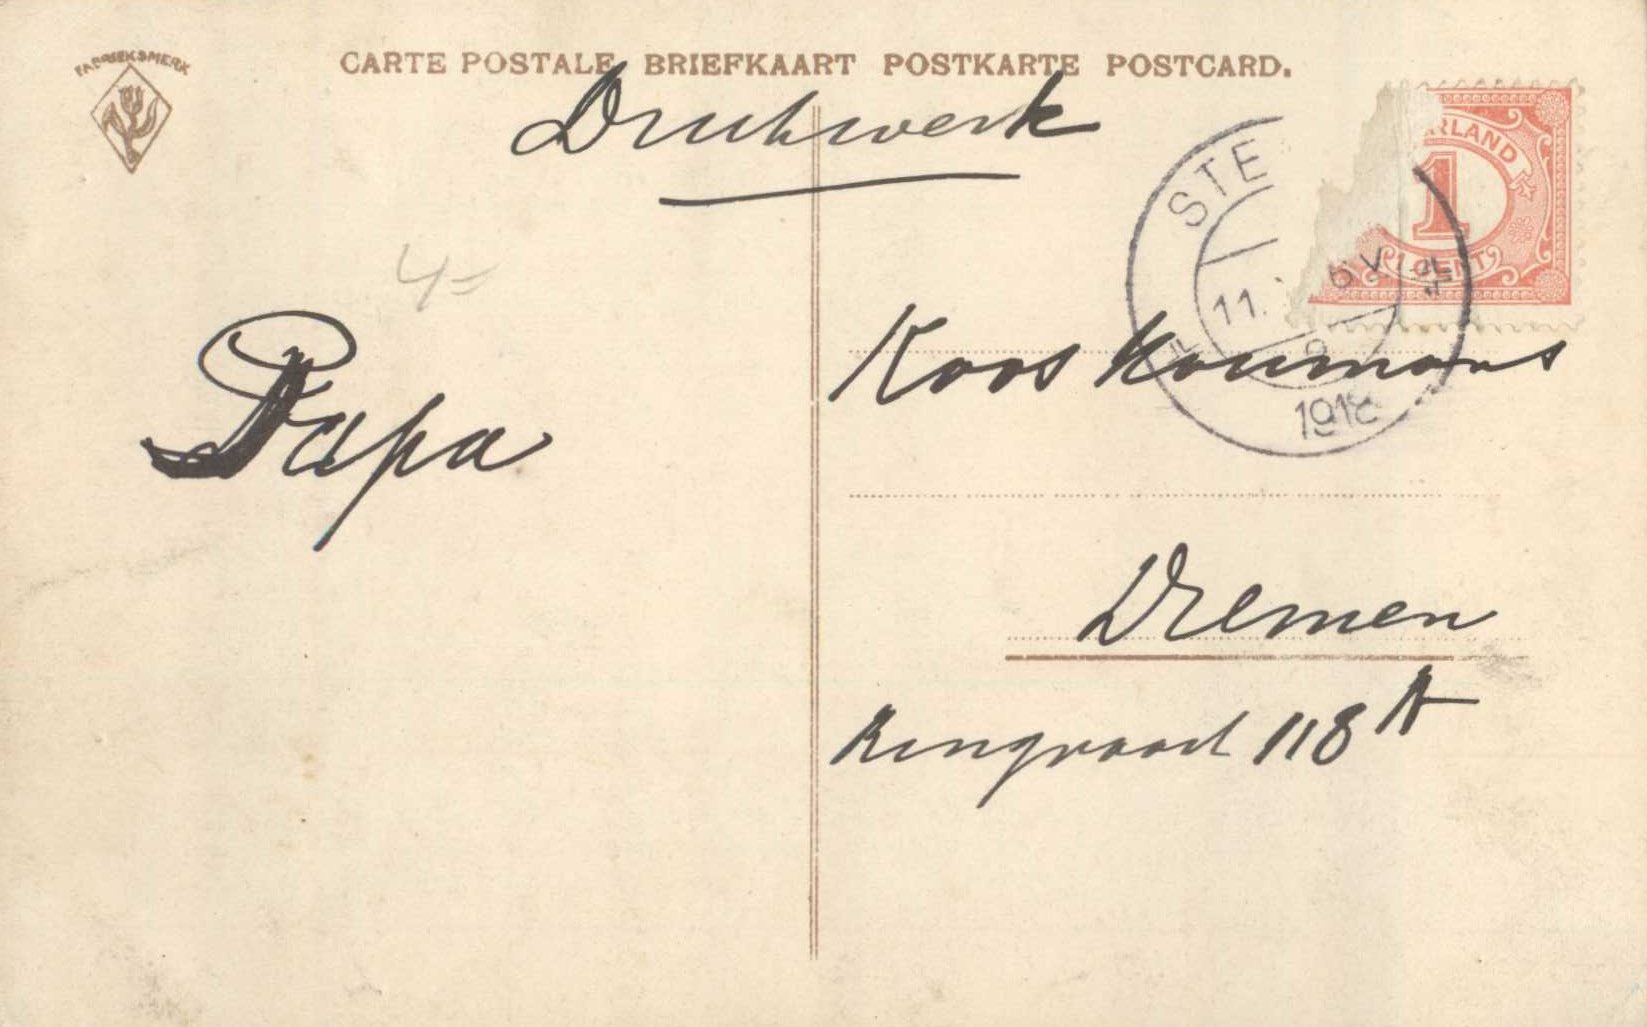 FABRIEKSMERK
CARTE POSTALE BRIEFKAART POSTKARTE POSTCARD.
Drukwerk
STE
RLAND
1
1 CENT
11. 6 V
1918
4=
Papa
Koos Koumans
Dremen
Ringvaart 118 A